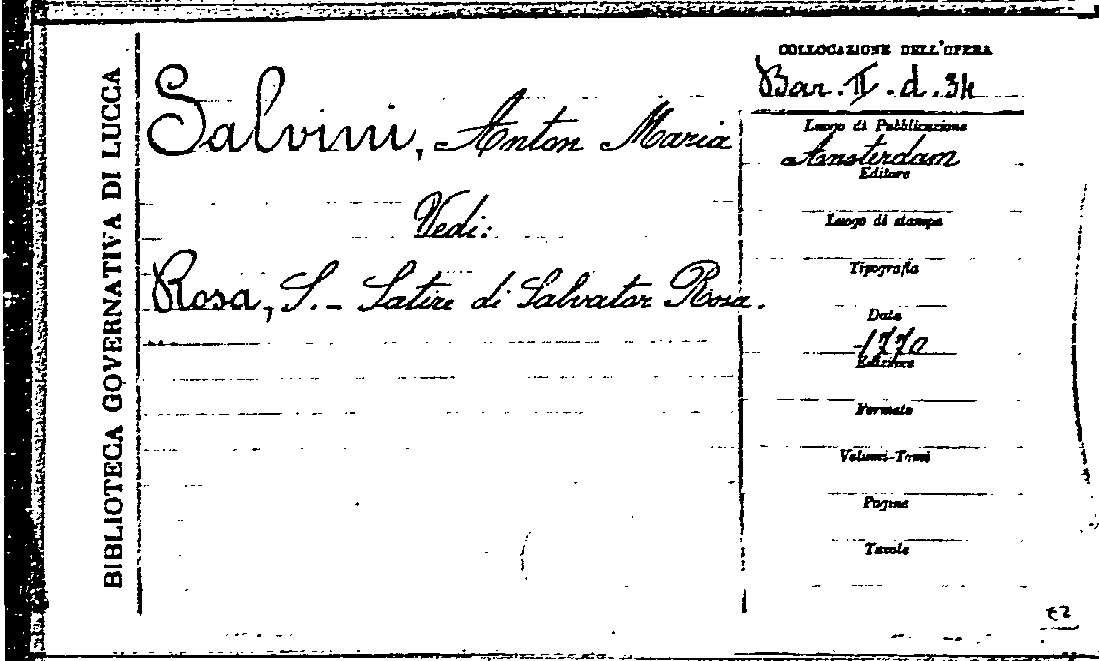 BIBLIOTECA GOVERNATIVA DI LUCCA
Salvini, Anton Maria
Vedi:
Rosa, S. - Satire di Salvator Rosa.
COLLOCAZIONE DELL'OPERA
Bar. II. d. 34
Luogo di Pubblicazione
Amsterdam
Editore
Luogo di stampa
Tipografia
Data
1770
Edizione
Formato
Volumi-Tomi
Pagine
Tavole